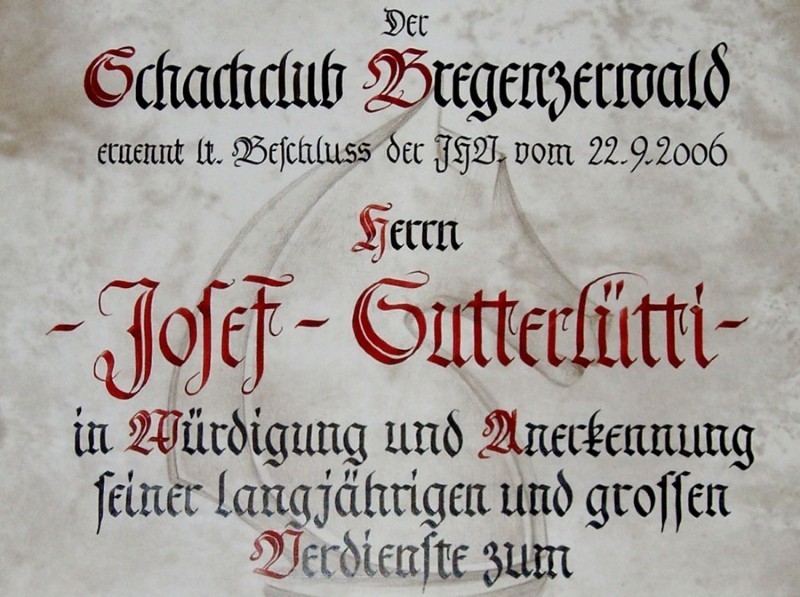 Der
Schachclub Bregenzerwald
ernennt lt. Beschluss der JHV. vom 22.9.2006
Herrn
- Josef - Gutterlütti -
in Würdigung und Anerkennung
seiner langjährigen und grossen
Verdienste zum